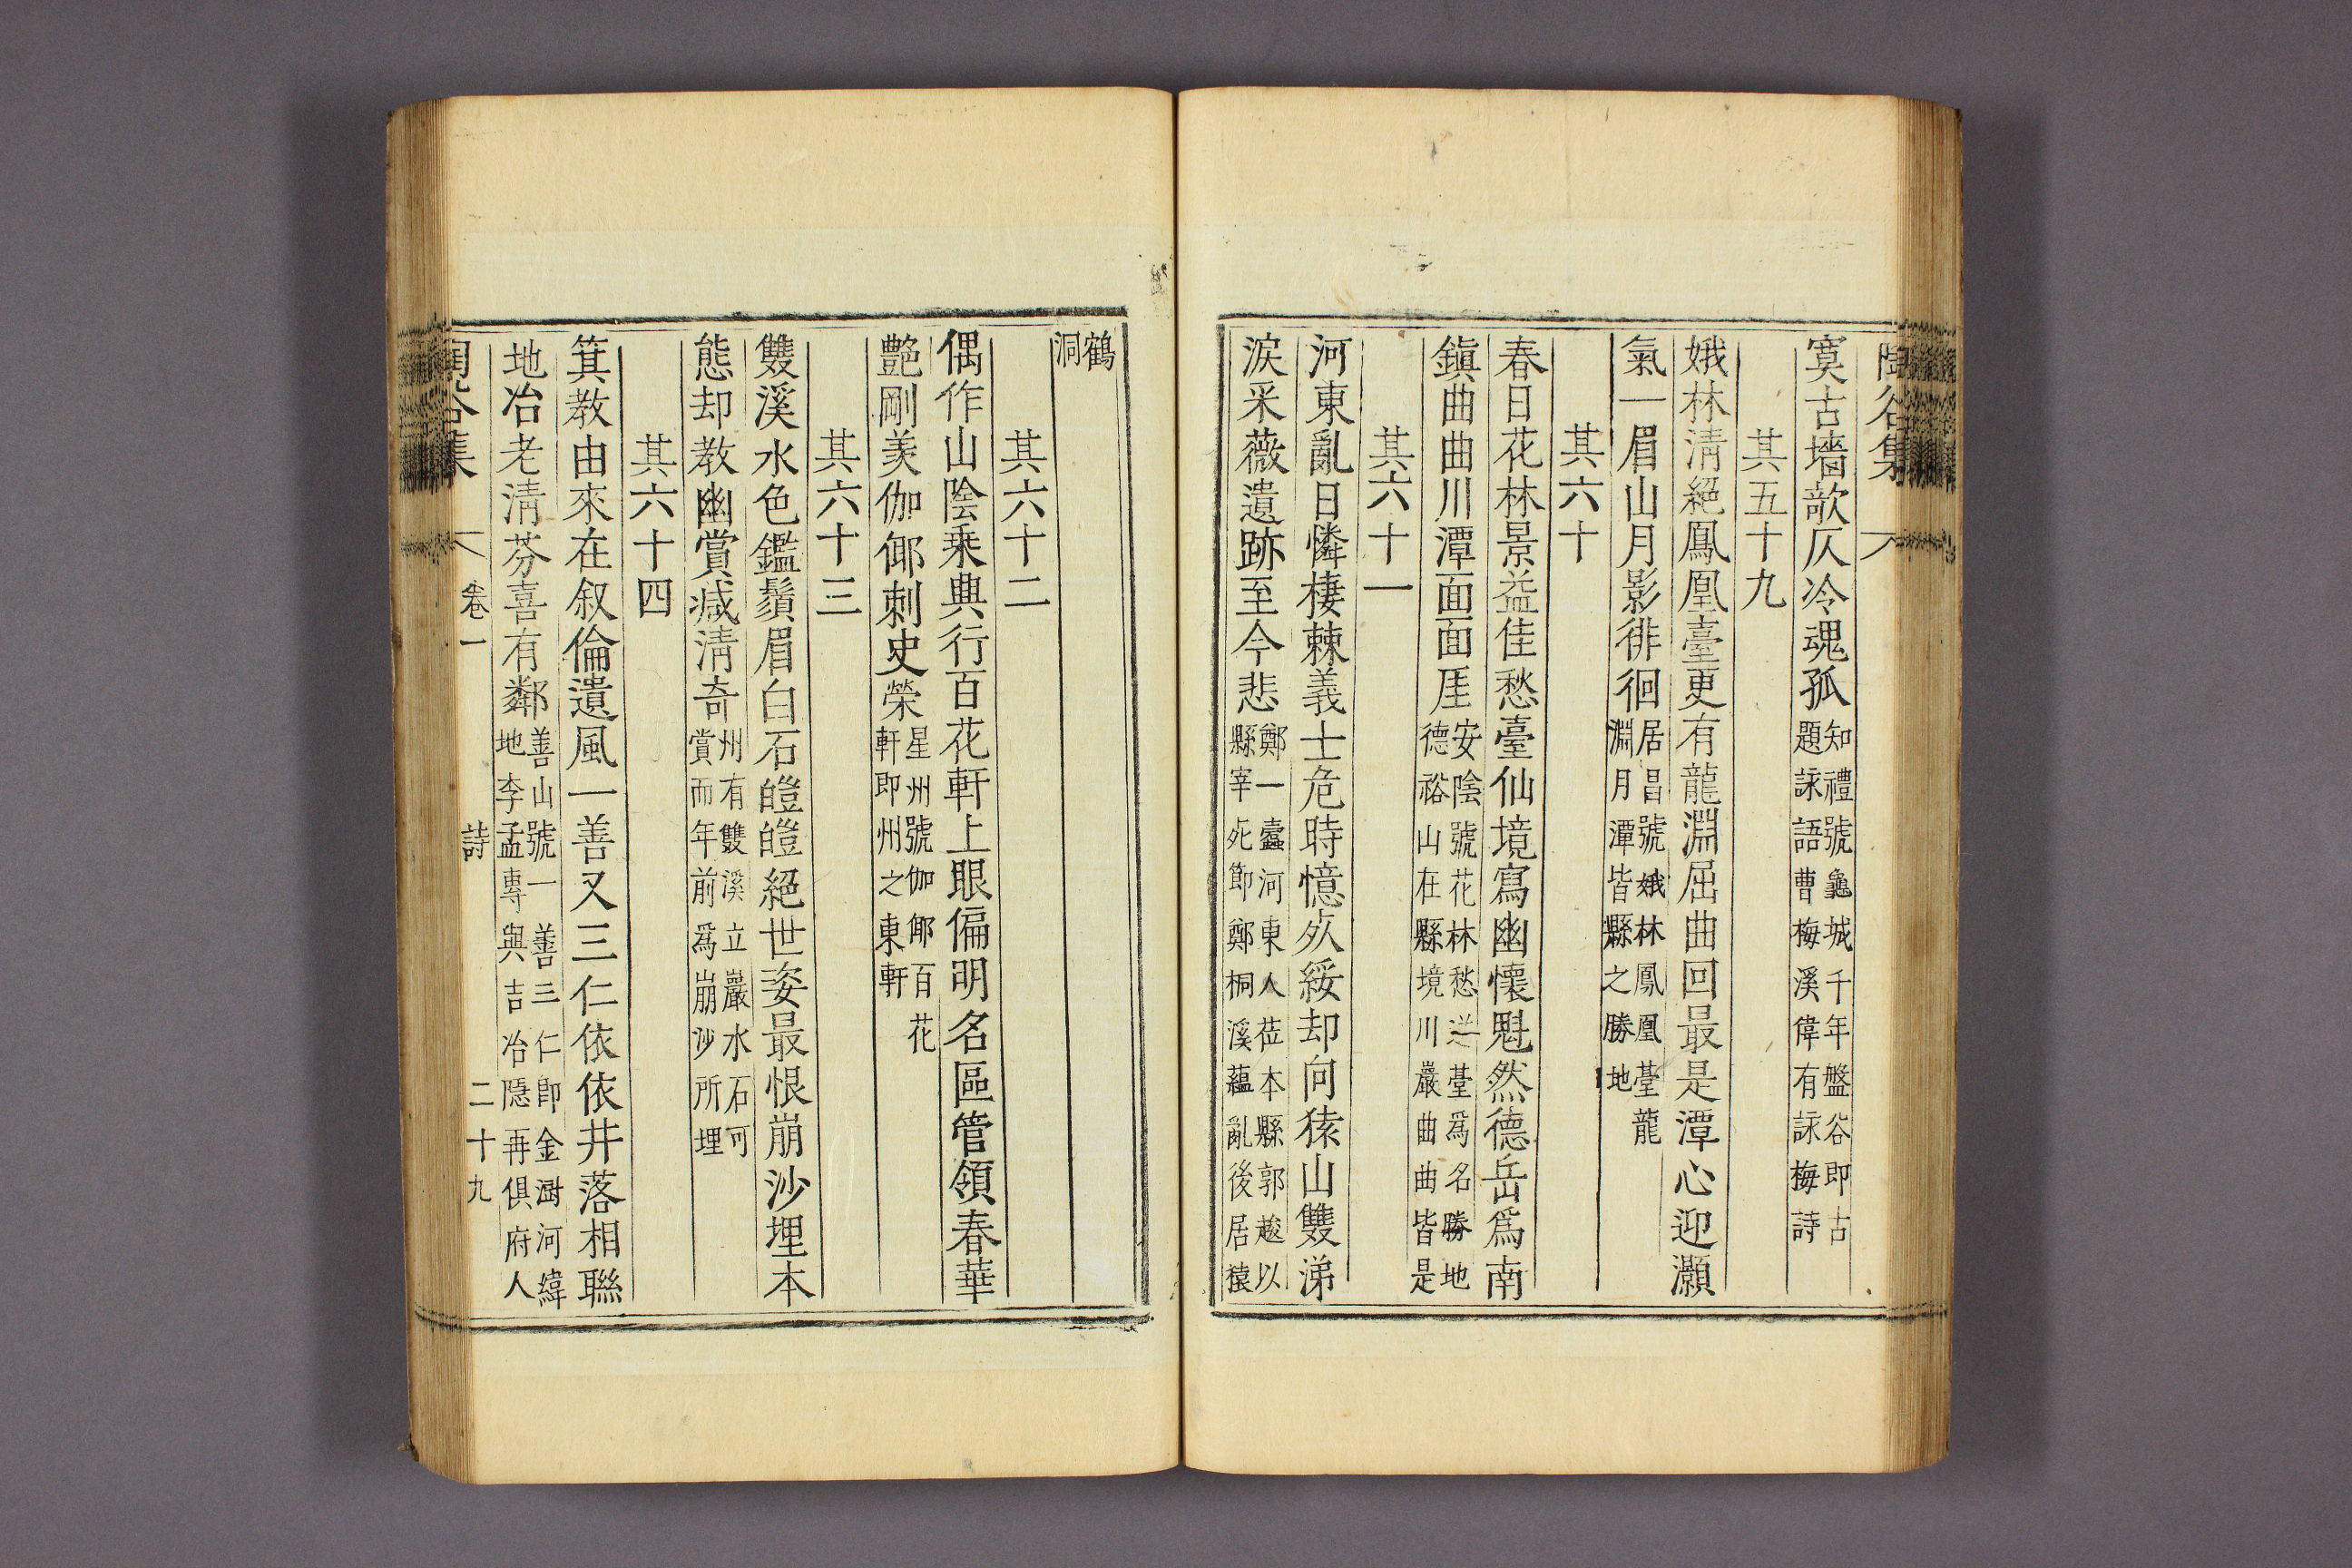 寞古墻欹仄冷魂孤知禮號龜城千年盤谷即古
題詠語曹梅溪偉有詠梅詩
其五十九
娥林淸絕鳳凰臺更有龍淵屈曲回最是潭心迎灝
氣一眉山月影徘徊居昌號娥林鳳凰臺龍
淵月潭皆縣之勝地
其六十
春日花林景益佳愁臺仙境寫幽懷魁然德岳爲南
鎭曲曲川潭面面厓安陰號花林愁送臺爲名勝地
德裕山在縣境川巖曲曲皆是
其六十一
河東亂日憐棲棘義士危時憶死綏却向猿山雙涕
淚采薇遺跡至今悲鄭一蠹河東人莅本縣郭䞭以
縣宰死節鄭桐溪蘊亂後居猿
鶴
洞
其六十二
偶作山陰乘興行百花軒上眼偏明名區管領春華
艶剛羡伽倻刺史榮星州號伽倻百花
軒即州之東軒
其六十三
雙溪水色鑑鬚眉白石皚皚絕世姿最恨崩沙埋本
態却教幽賞減淸奇州有雙溪立巖水石可
賞而年前爲崩沙所埋
其六十四
箕教由來在叙倫遺風一善又三仁依依井落相聯
地冶老淸芬喜有鄰善山號一善三仁即金澍河緯
地李孟專與吉冶隱再俱府人
陶谷集 卷一 詩 二十九